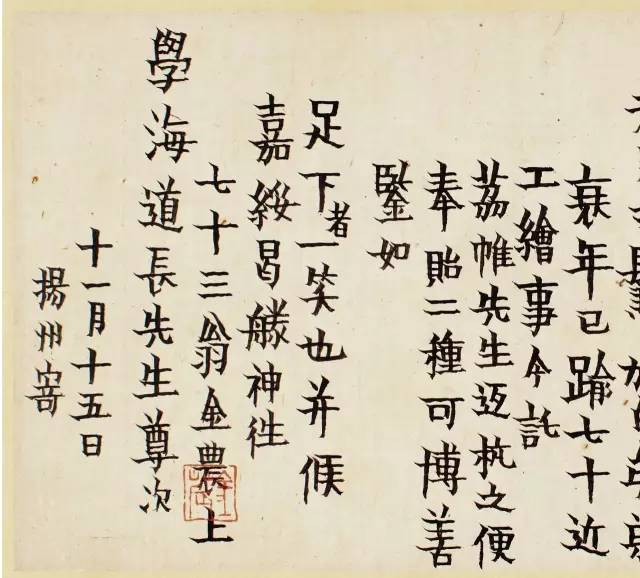 衰年已踰七十近
工繪事今託
荔帷先生返杭之便
奉貽二種可博善
鑒如
足下者一笑也并候
嘉綏曷勝神徃
七十三翁金農上
學海道長先生尊次
十一月十五日
揚州寄